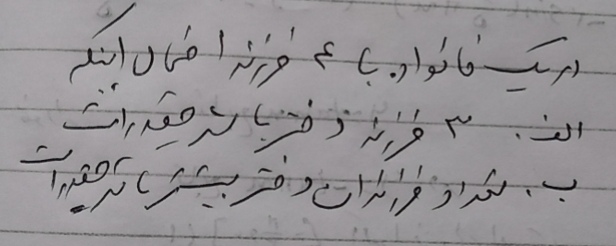 در یک خانواده با ۴ فرزند احتمال اینکه
الف. ۳ فرزند دختر باشد چقدر است
ب. تعداد فرزندان دختر بیشتر باشد چقدر است